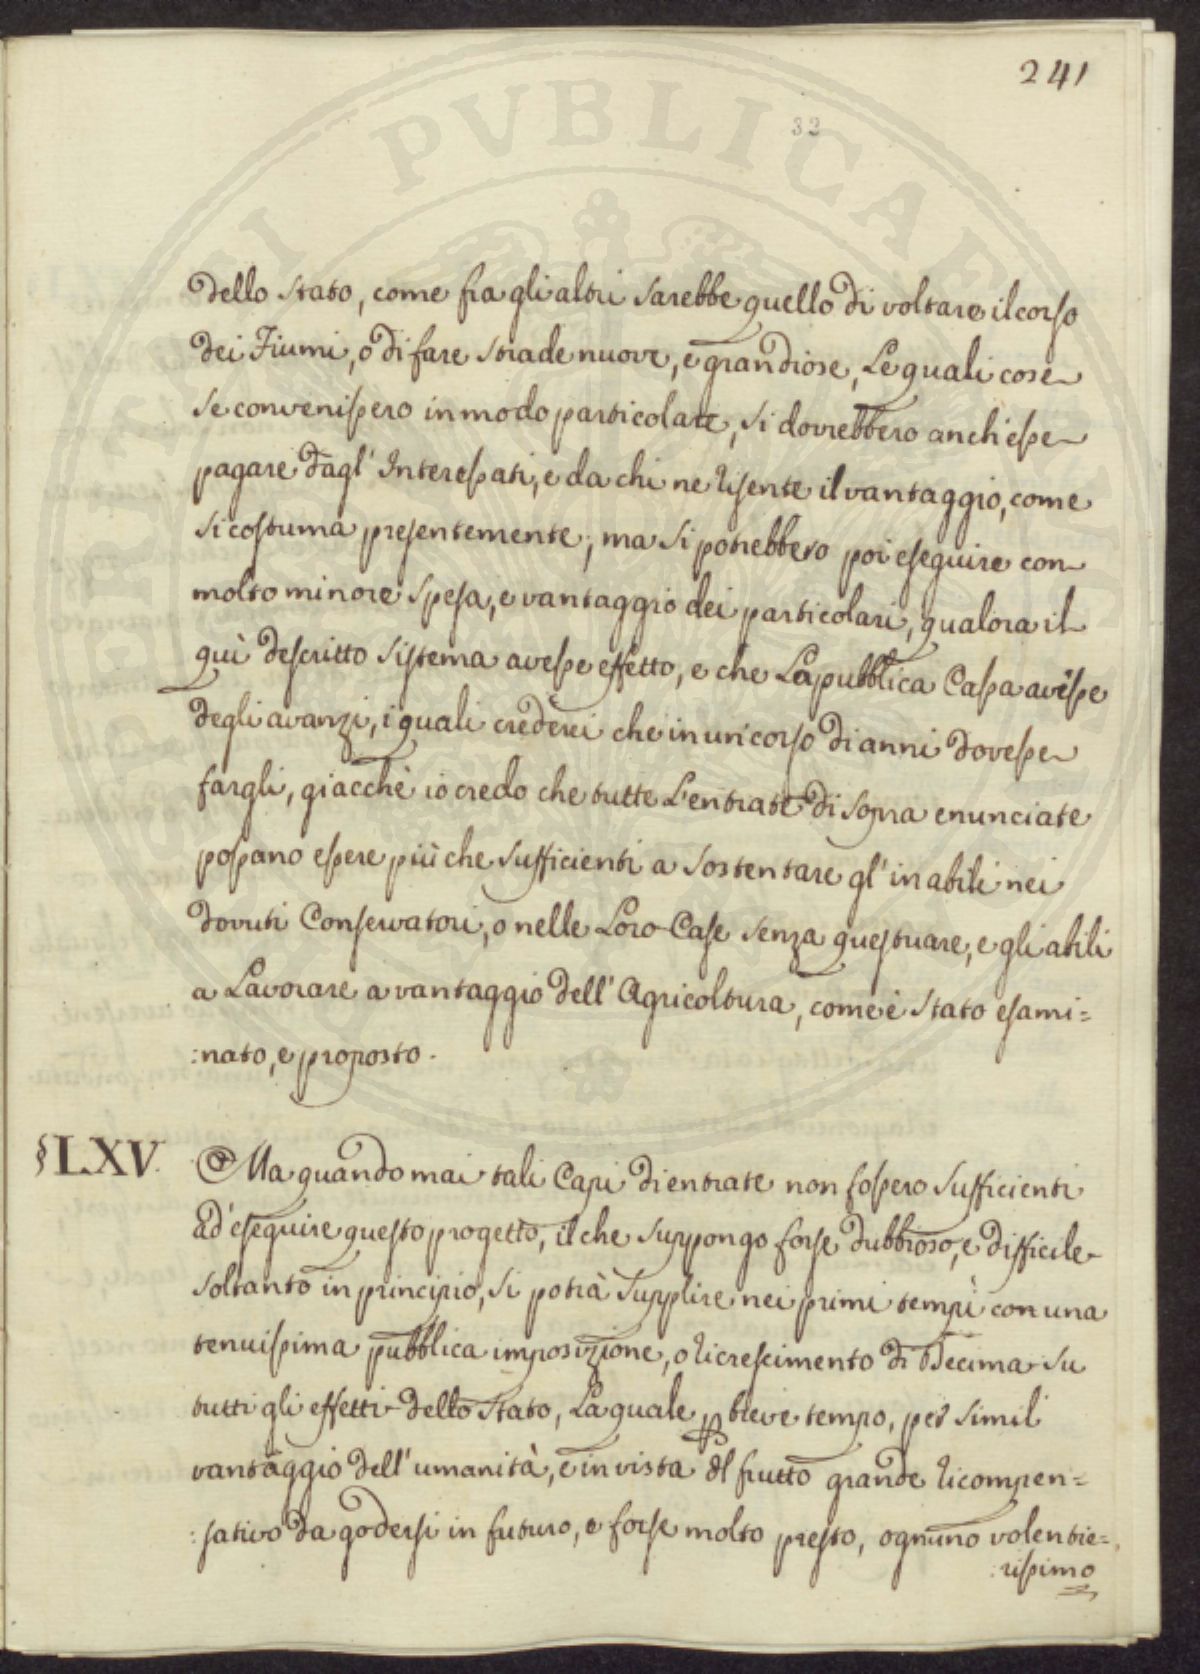 241
32
PERITATI PVBLICAE
dello Stato, come fra gli altri sarebbe quello di voltare il corso
dei Fiumi, o di fare strade nuove, e grandiose, Le quali cose
se convenissero in modo particolare, si dovrebbero anch'esse
pagare dagl' Interessati, e da chi ne risente il vantaggio, come
si costuma presentemente; ma si potrebbero poi eseguire con
molto minore spesa, e vantaggio dei particolari, qualora il
quì descritto sistema avesse effetto, e che La pubblica Cassa avesse
degli avanzi, i quali crederei che in un corso di anni dovesse
fargli, giacchè io credo che tutte L'entrate di sopra enunciate
possano essere più che sufficienti a sostentare gl' inabili nei
dovuti Conservatori, o nelle Loro Case senza questuare, e gli abili
a Lavorare a vantaggio dell' Agricoltura, come è stato esami=
:nato, e proposto.
§ LXV. Ma quando mai tali Capi di entrate non fossero sufficienti
ad' eseguire questo progetto, il che suppongo forse dubbioso, e difficile
soltanto in principio, si potrà supplire nei primi tempi con una
tenuissima pubblica imposizione, o ricrescimento di Decima su
tutti gli effetti dello Stato, La quale p breve tempo, per simil
vantaggio dell' umanità, e in vista del frutto grande ricompen=
:sativo da godersi in futuro, e forse molto presto, ognuno volentie=
:rissimo